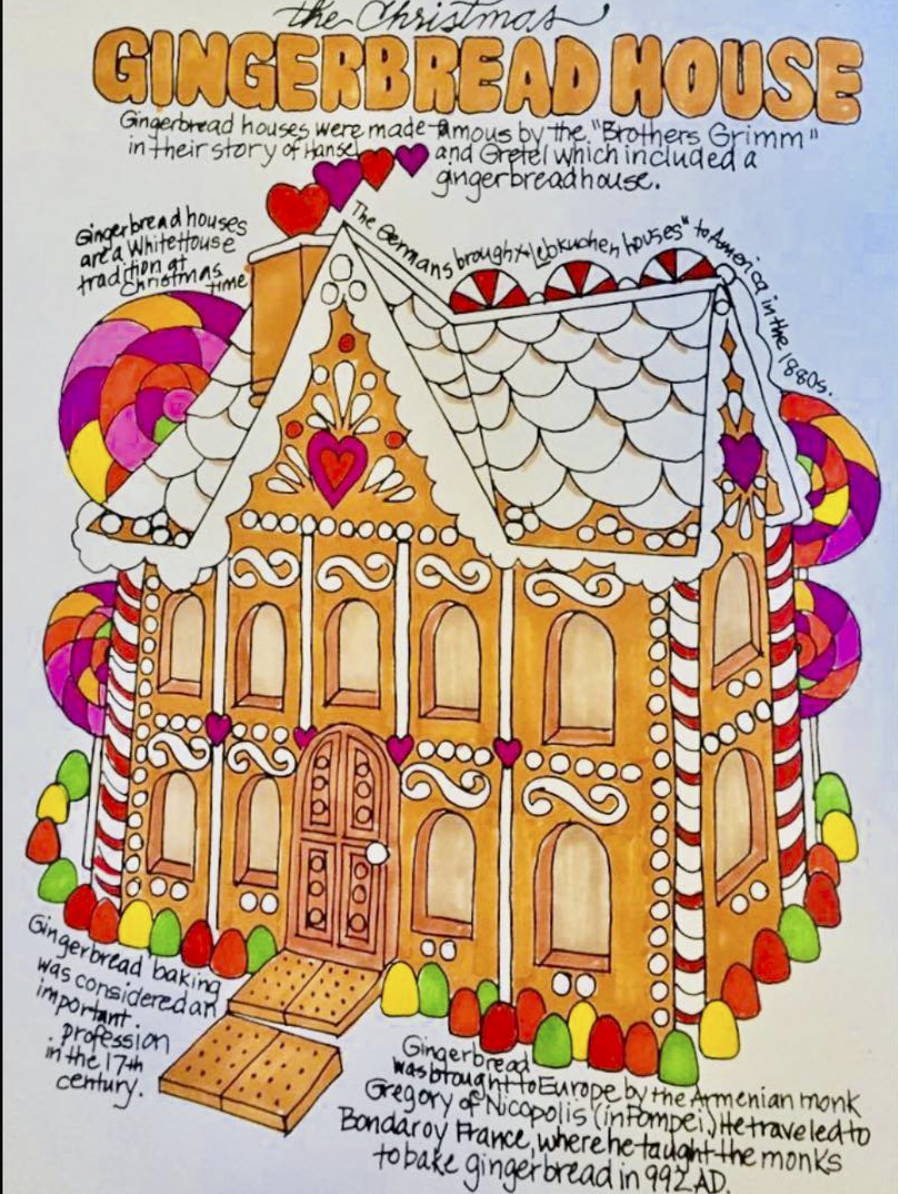 the Christmas
GINGERBREAD HOUSE
Gingerbread houses were made famous by the "Brothers Grimm"
in their story of Hansel and Gretel which included a
gingerbread house.
Gingerbread houses
are a White House
tradition at
Christmas
time
The Germans brought "Lebkuchen houses" to America in the 1880s.
Gingerbread baking
was considered an
important
profession
in the 17th
century.
Gingerbread
was brought to Europe by the Armenian monk
Gregory of Nicopolis (in Pompei.) He traveled to
Bondaroy France, where he taught the monks
to bake gingerbread in 992 AD.